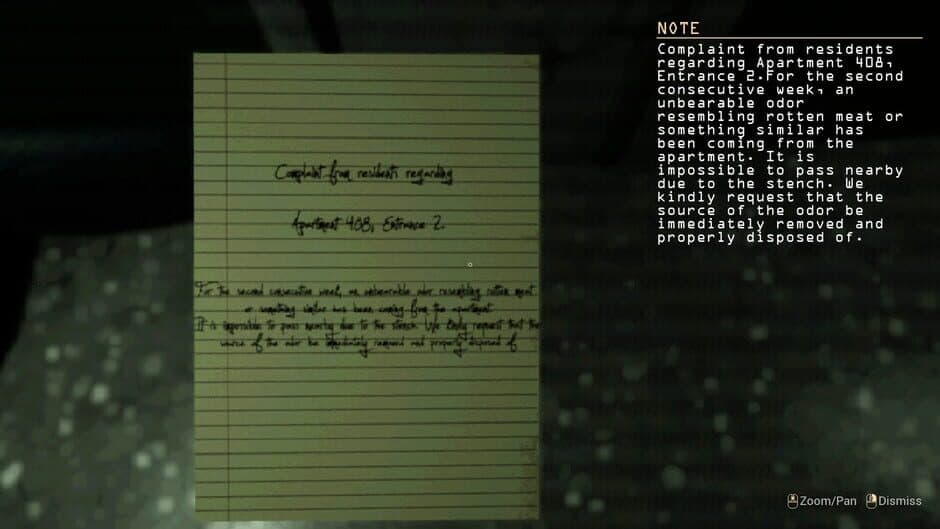 Complaint from residents regarding
Apartment 408, Entrance 2.
For the second consecutive week, an unbearable odor resembling rotten meat
or something similar has been coming from the apartment.
It is impossible to pass nearby due to the stench. We kindly request that the
source of the odor be immediately removed and properly disposed of.
NOTE
Complaint from residents
regarding Apartment 408,
Entrance 2.For the second
consecutive week, an
unbearable odor
resembling rotten meat or
something similar has
been coming from the
apartment. It is
impossible to pass nearby
due to the stench. We
kindly request that the
source of the odor be
immediately removed and
properly disposed of.
Zoom/Pan Dismiss